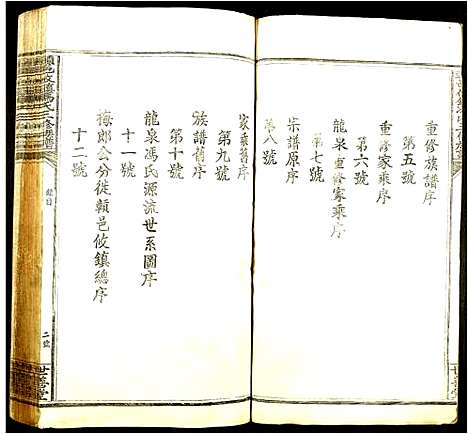 重修族譜序
第五號
重修家乘序
第六號
龍泉重修家乘序
第七號
宗譜原序
第八號
家乘舊序
第九號
族譜舊序
第十號
龍泉馮氏源流世系圖序
十一號
梅郎公分徙贛邑攸鎮總序
十二號
目錄
二號
世善堂